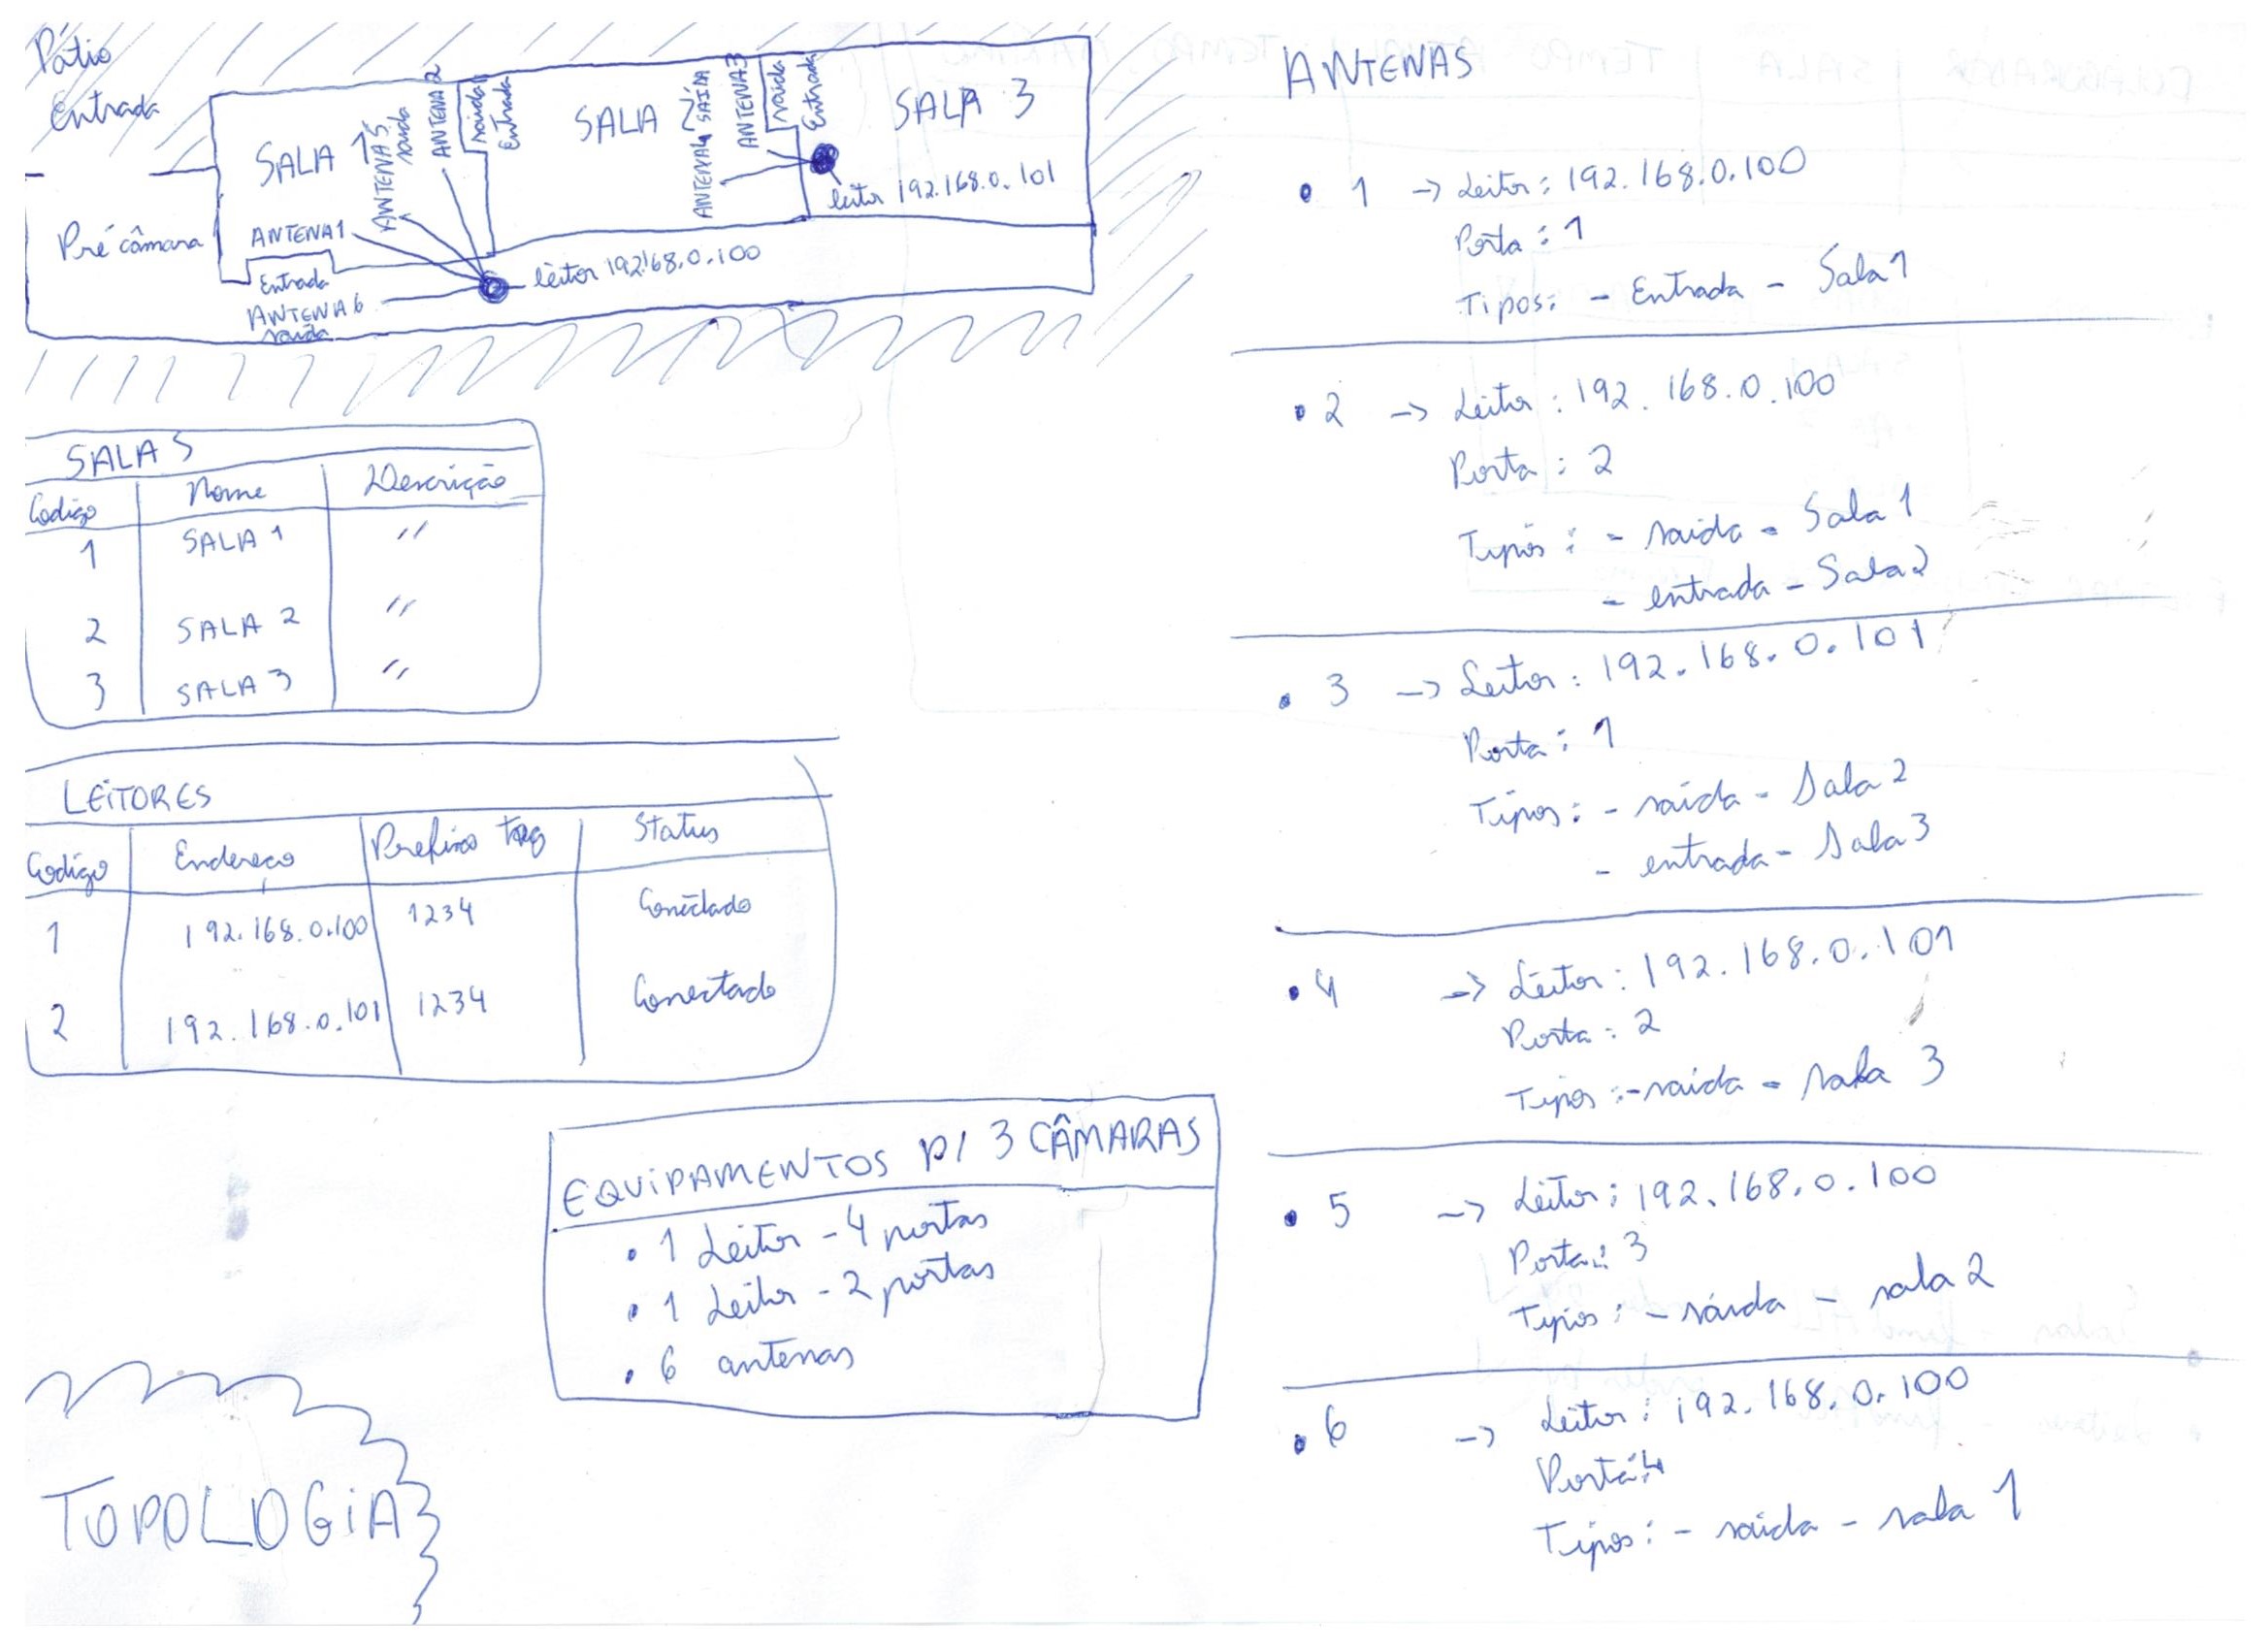 Pátio
Entrada
Pré câmara
SALA 1
ANTENA 5
saída
ANTENA 2
saída
Entrada
SALA 2
ANTENA 4 SAÍDA
ANTENA 3
saída
Entrada
SALA 3
leitor 192.168.0.101
ANTENA 1
Entrada
ANTENA 6
saída
leitor 192.168.0.100
SALAS
Codigo Nome Descrição
1 SALA 1 "
2 SALA 2 "
3 SALA 3 "
LEITORES
Codigo Endereço Prefixo tag Status
1 192.168.0.100 1234 Conectado
2 192.168.0.101 1234 Conectado
EQUIPAMENTOS P/ 3 CÂMARAS
• 1 Leitor - 4 portas
• 1 Leitor - 2 portas
• 6 antenas
TOPOLOGIA
ANTENAS
• 1 -> Leitor: 192.168.0.100
Porta: 1
Tipos: - Entrada - Sala 1
• 2 -> Leitor: 192.168.0.100
Porta: 2
Tipos: - saida - Sala 1
- entrada - Sala 2
• 3 -> Leitor: 192.168.0.101
Porta: 1
Tipos: - saída - Sala 2
- entrada - Sala 3
• 4 -> Leitor: 192.168.0.101
Porta: 2
Tipos: - saída - sala 3
• 5 -> Leitor: 192.168.0.100
Porta: 3
Tipos: - saída - sala 2
• 6 -> Leitor: 192.168.0.100
Porta: 4
Tipos: - saída - sala 1